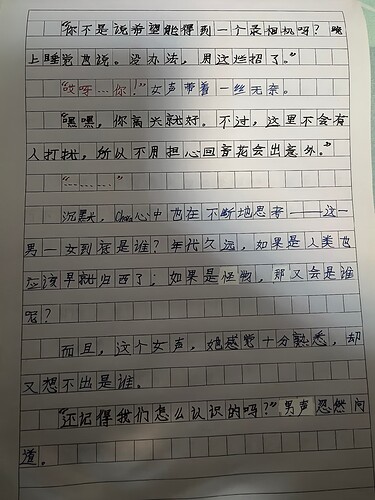 “你不是说希望能得到一个录相机吗？晚
上睡觉也说。没办法，用这些招了。”
“哎呀…你！”女声带着一丝无奈。
“嘿嘿，你高兴就好。不过，这里不会有
人打扰，所以不用担心回音花会出意外。”
“………”
沉默，Chara心中也在不断地思考——这一
男一女到底是谁？年代久远，如果是人类也
应该早就归西了；如果是怪物，那又会是谁
呢？
而且，这个女声，她感觉十分熟悉，却
又想不出是谁。
“还记得我们怎么认识的吗？”男声忽然问
道。